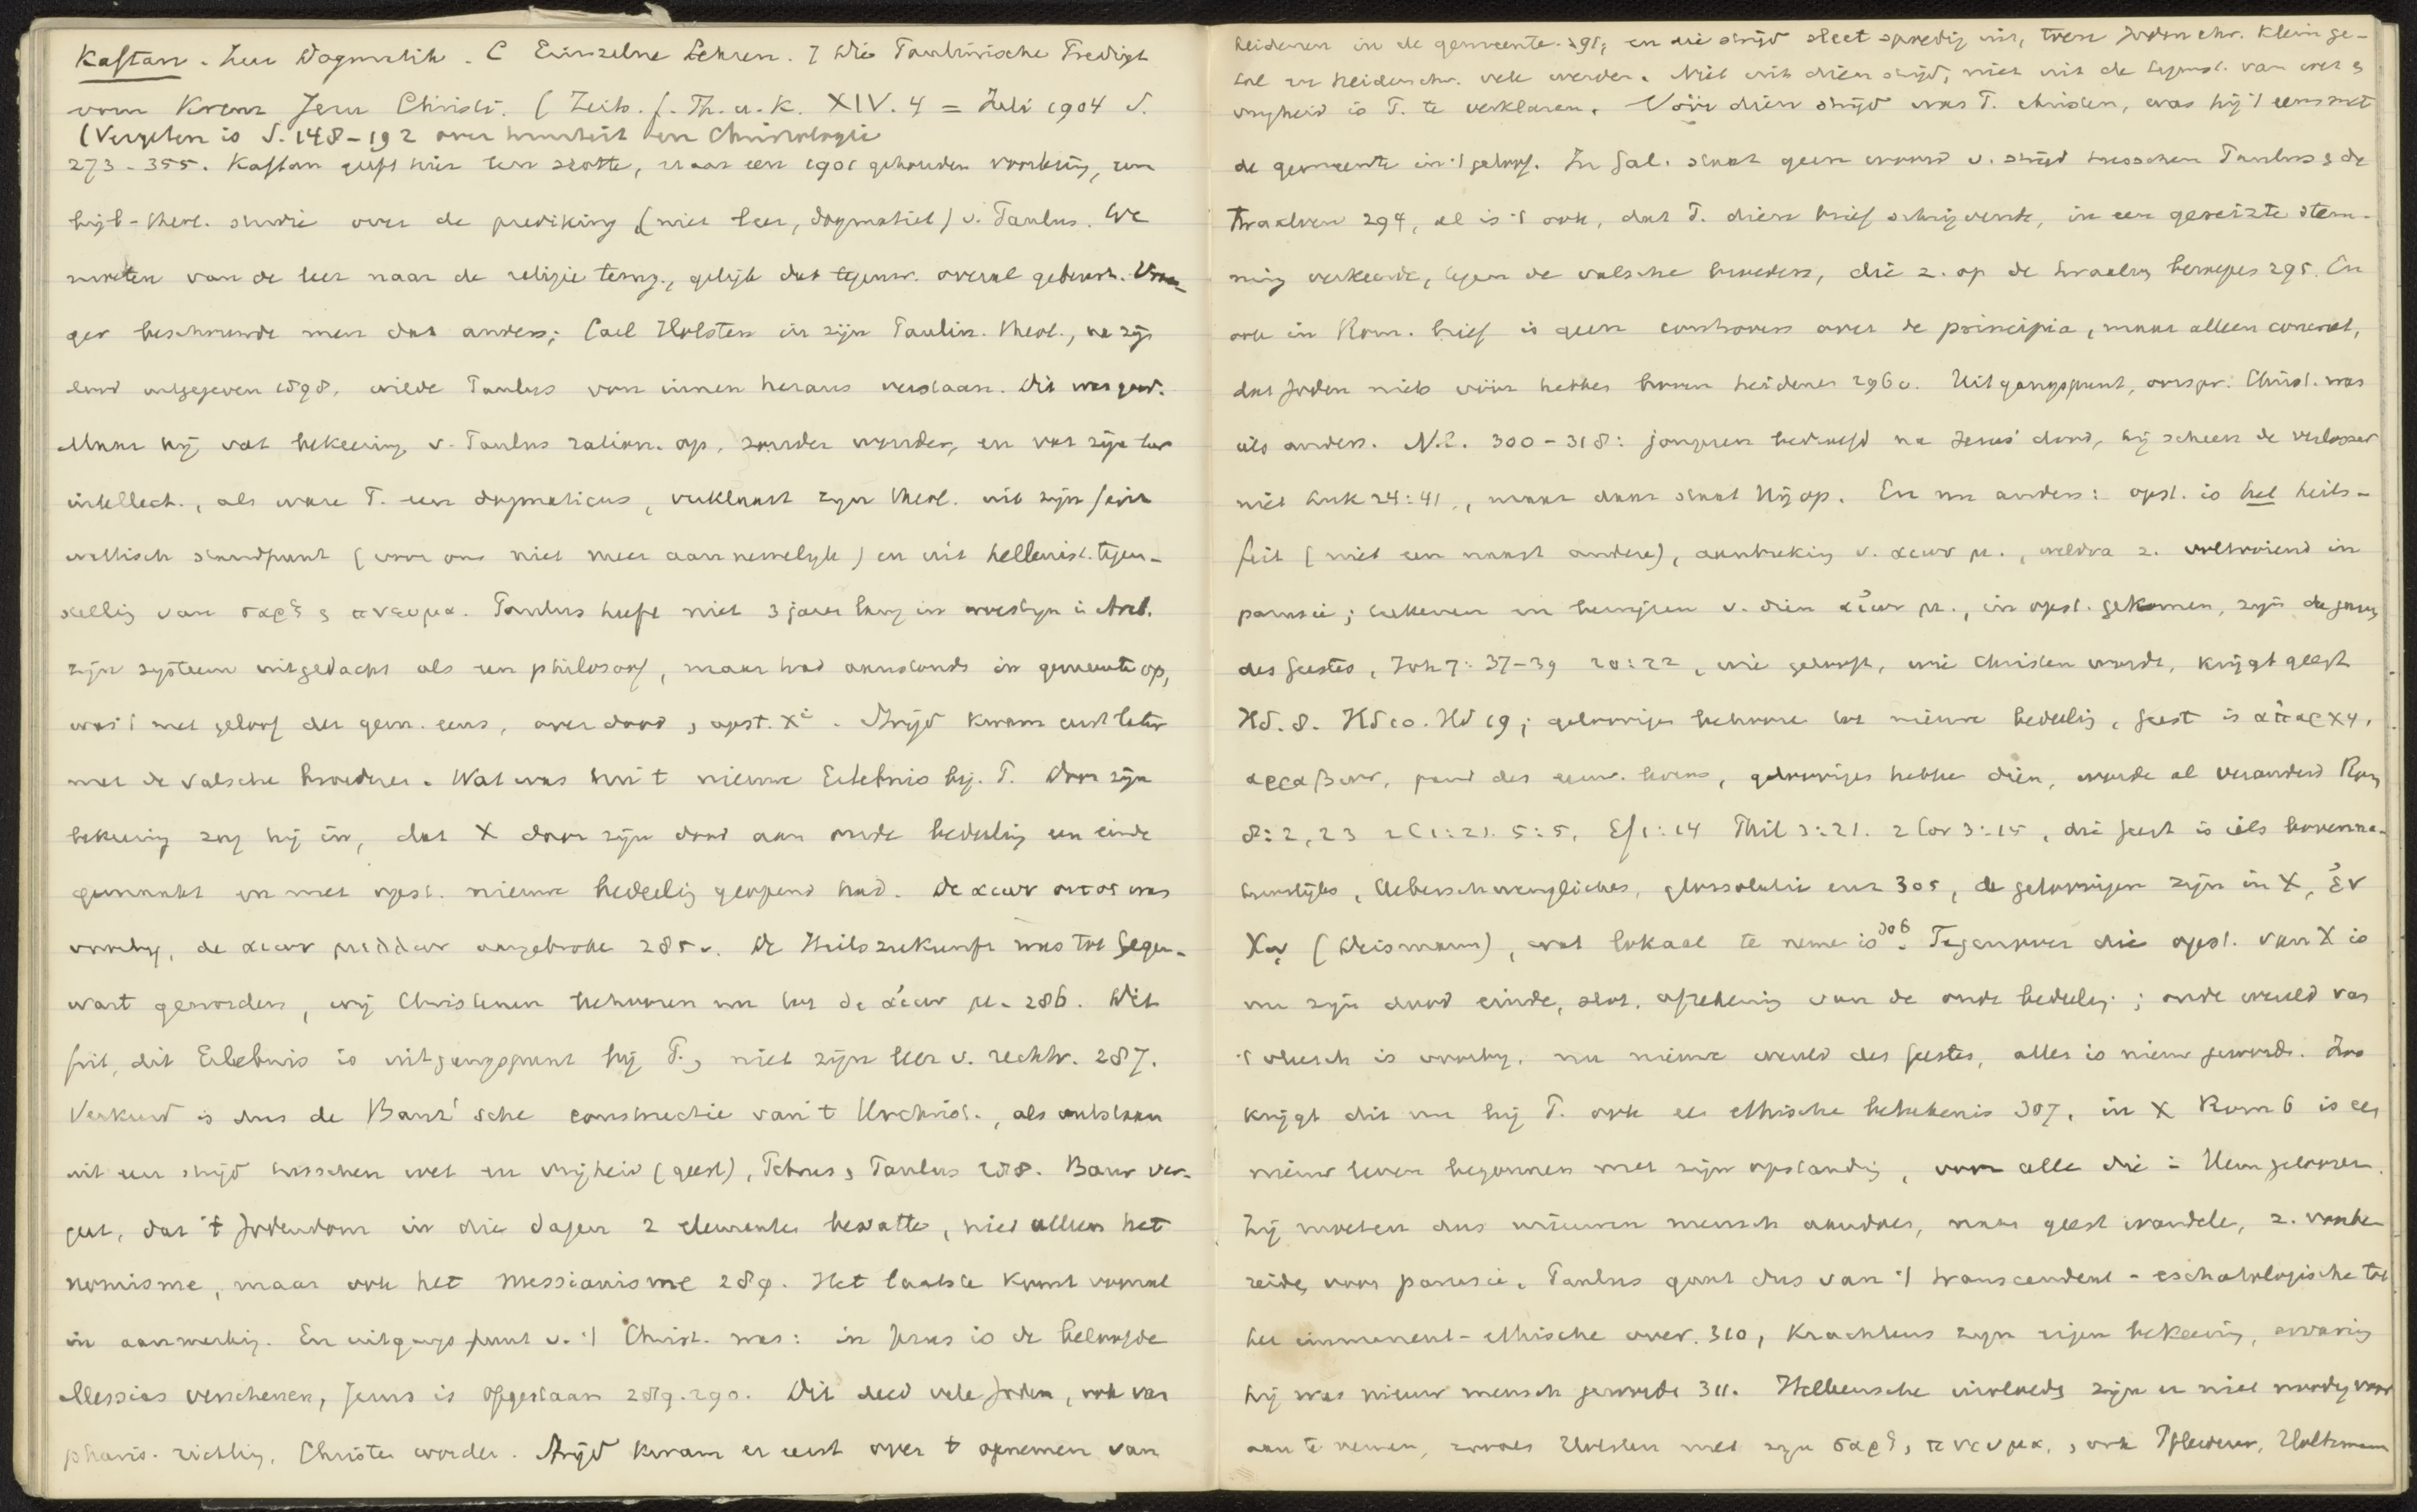 Kaftan. Zur Dogmatik. C Einzelne Lehren. 7 Die Paulinische Predigt
vom Kreuz Jesu Christi. (Zeits. f. Th. u. K. XIV. 4 = Juli 1904 S.
(Vergeten is S. 148-192 over en Christologie
273-355. Kaftan geeft hier ten slotte, naar een 1901 gehouden voorlezing, een
bijb-theol. studie over de prediking (niet leer, dogmatiek) v. Paulus. We
moeten van de leer naar de religie terug, gelijk dat tegenw. overal gebeurt. Vroe-
ger beschouwde men dat anders; Carl Holsten in zijn Paulin. theol., na zijn
dood uitgegeven 1898, wilde Paulus von innen heraus verstaan. Dit was goed.
Maar hij vat bekeering v. Paulus ration. op, zonder wonder, en vat zijn leer
intellect., als ware P. een dogmaticus, verklaart zijn theol. uit zijn join
wettisch standpunt (voor ons niet meer aannemelijk) en uit hellenist. tegen-
stelling van σαρξ & πνευμα. Paulus heeft niet 3 jaren lang in woestijn in Arab.
zijn systeem uitgedacht als een philosoof, maar trad aanstonds in gemeente op,
was 't met geloof der gem. eens, over dood & opst. Xi. Strijd kwam eerst later
met de valsche broederen. Wat was nu 't nieuwe Erlebnis bij P. Door zijn
bekeering zag hij in, dat X door zijn dood aan oude bedeeling een einde
gemaakt en met opst. nieuwe bedeeling geopend had. De αιων ουτος was
voorbij, de αιων μελλων aangebroken 285v. De Heilszukunft was tot Gegen-
wart geworden, wij Christenen behooren nu tot de αἰων μ. 286. Dit
feit, dit Erlebnis is uitgangspunt bij P., niet zijn leer v. rechtv. 287.
Verkeerd is dus de Baur'sche constructie van 't Urchrist., als ontstaan
uit een strijd tusschen wet en vrijheid (geest), Petrus & Paulus 288. Baur ver-
geet, dat 't Jodendom in die dagen 2 elementen bevatte, niet alleen het
nomisme, maar ook het messianisme 289. Het laatste komt vooral
in aanmerking. En uitgangspunt v. 't Christ. was: in Jezus is de beloofde
Messias verschenen, Jezus is opgestaan 289.290. Dit deed vele Joden, ook van
pharis. richting, Christen worden. Strijd kwam er eerst over 't opnemen van
heidenen in de gemeente 291, en die strijd sleet spoedig uit, toen Joden chr. klein ge-
tal en heidenchr. vele werden. Niet uit dien strijd, niet uit de tegenst. van wet &
vrijheid is P. te verklaren. Vóór dien strijd was P. christen, was hij 't eens met
de gemeente in 't geloof. In Gal. staat geen woord v. strijd tusschen Paulus & de
Twaalven 294, al is 't ook, dat P. dien brief schrijvende, in een gereizte stem-
ming verkeerde, tegen de valsche broeders, die z. op de twaalve beroepen 295. En
ook in Rom. brief is geen controvers over de principia, maar alleen concreet,
dat Joden niets vóór hebben boven heidenen 296v. Uitgangspunt, oorspr. Christ. was
iets anders. N.l. 300-318: jongeren bedroefd na Jezus' dood, hij scheen de verlosser
niet Luk 24:41, maar daar staat Hij op. En nu anders: opst. is het heils-
feit (niet een naast andere), aanbreking v. αιων μ., weldra z. voltooiend in
parusie; teekenen en bewijzen v. dien αἰων μ., in opst. gekomen, zijn de gaven
des Geestes, Joh 7:37-39 20:22, wie gelooft, wie Christen wordt, krijgt geest
Hd. 8. Hd 10. Hd 19; geloovigen behooren tot nieuwe bedeeling, Geest is ἀπαρχη,
αρραβων, pand des eeuw. levens, geloovigen hebben dien, worden al veranderd Rom
8:2, 23 2 C 1:21. 5:5, Ef 1:14 Phil 3:21. 2 Cor 3:15, die geest is iets bovenna-
tuurlijks, Ueberschwengliches, glossolalie enz 305, de geloovigen zijn in X, ἐν
Χῳ (Deismann), wat lokaal te nemen is 306. Tegenover die opst. van X is
nu zijn dood einde, slot, afrekening van de oude bedeeling; oude wereld van
't vleesch is voorbij, nu nieuwe wereld des Geestes, alles is nieuw geworden. Zoo
krijgt dit nu bij P. ook een ethische beteekenis 307, in X Rom 6 is een
nieuw leven begonnen met zijn opstanding, voor alle die in Hem gelooven.
Zij moeten dus nieuwen mensch aandoen, naar geest wandelen, z. voorbe-
reiden voor parusie. Paulus gaat dus van 't transcendent-eschatologische tot
het immanent-ethische over. 310, krachtens zijn eigen bekeering, ervaring
hij was nieuw mensch geworden 311. Helleensche invloeden zijn er niet noodig voor
aan te nemen, zooals Holsten met zijn σαρξ, πνευμα, & ook Pfleiderer, Holtzmann